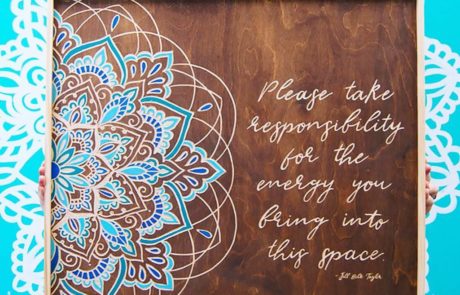 Please take
responsibility
for the
energy you
bring into
this space.
- Jill Bolte Taylor